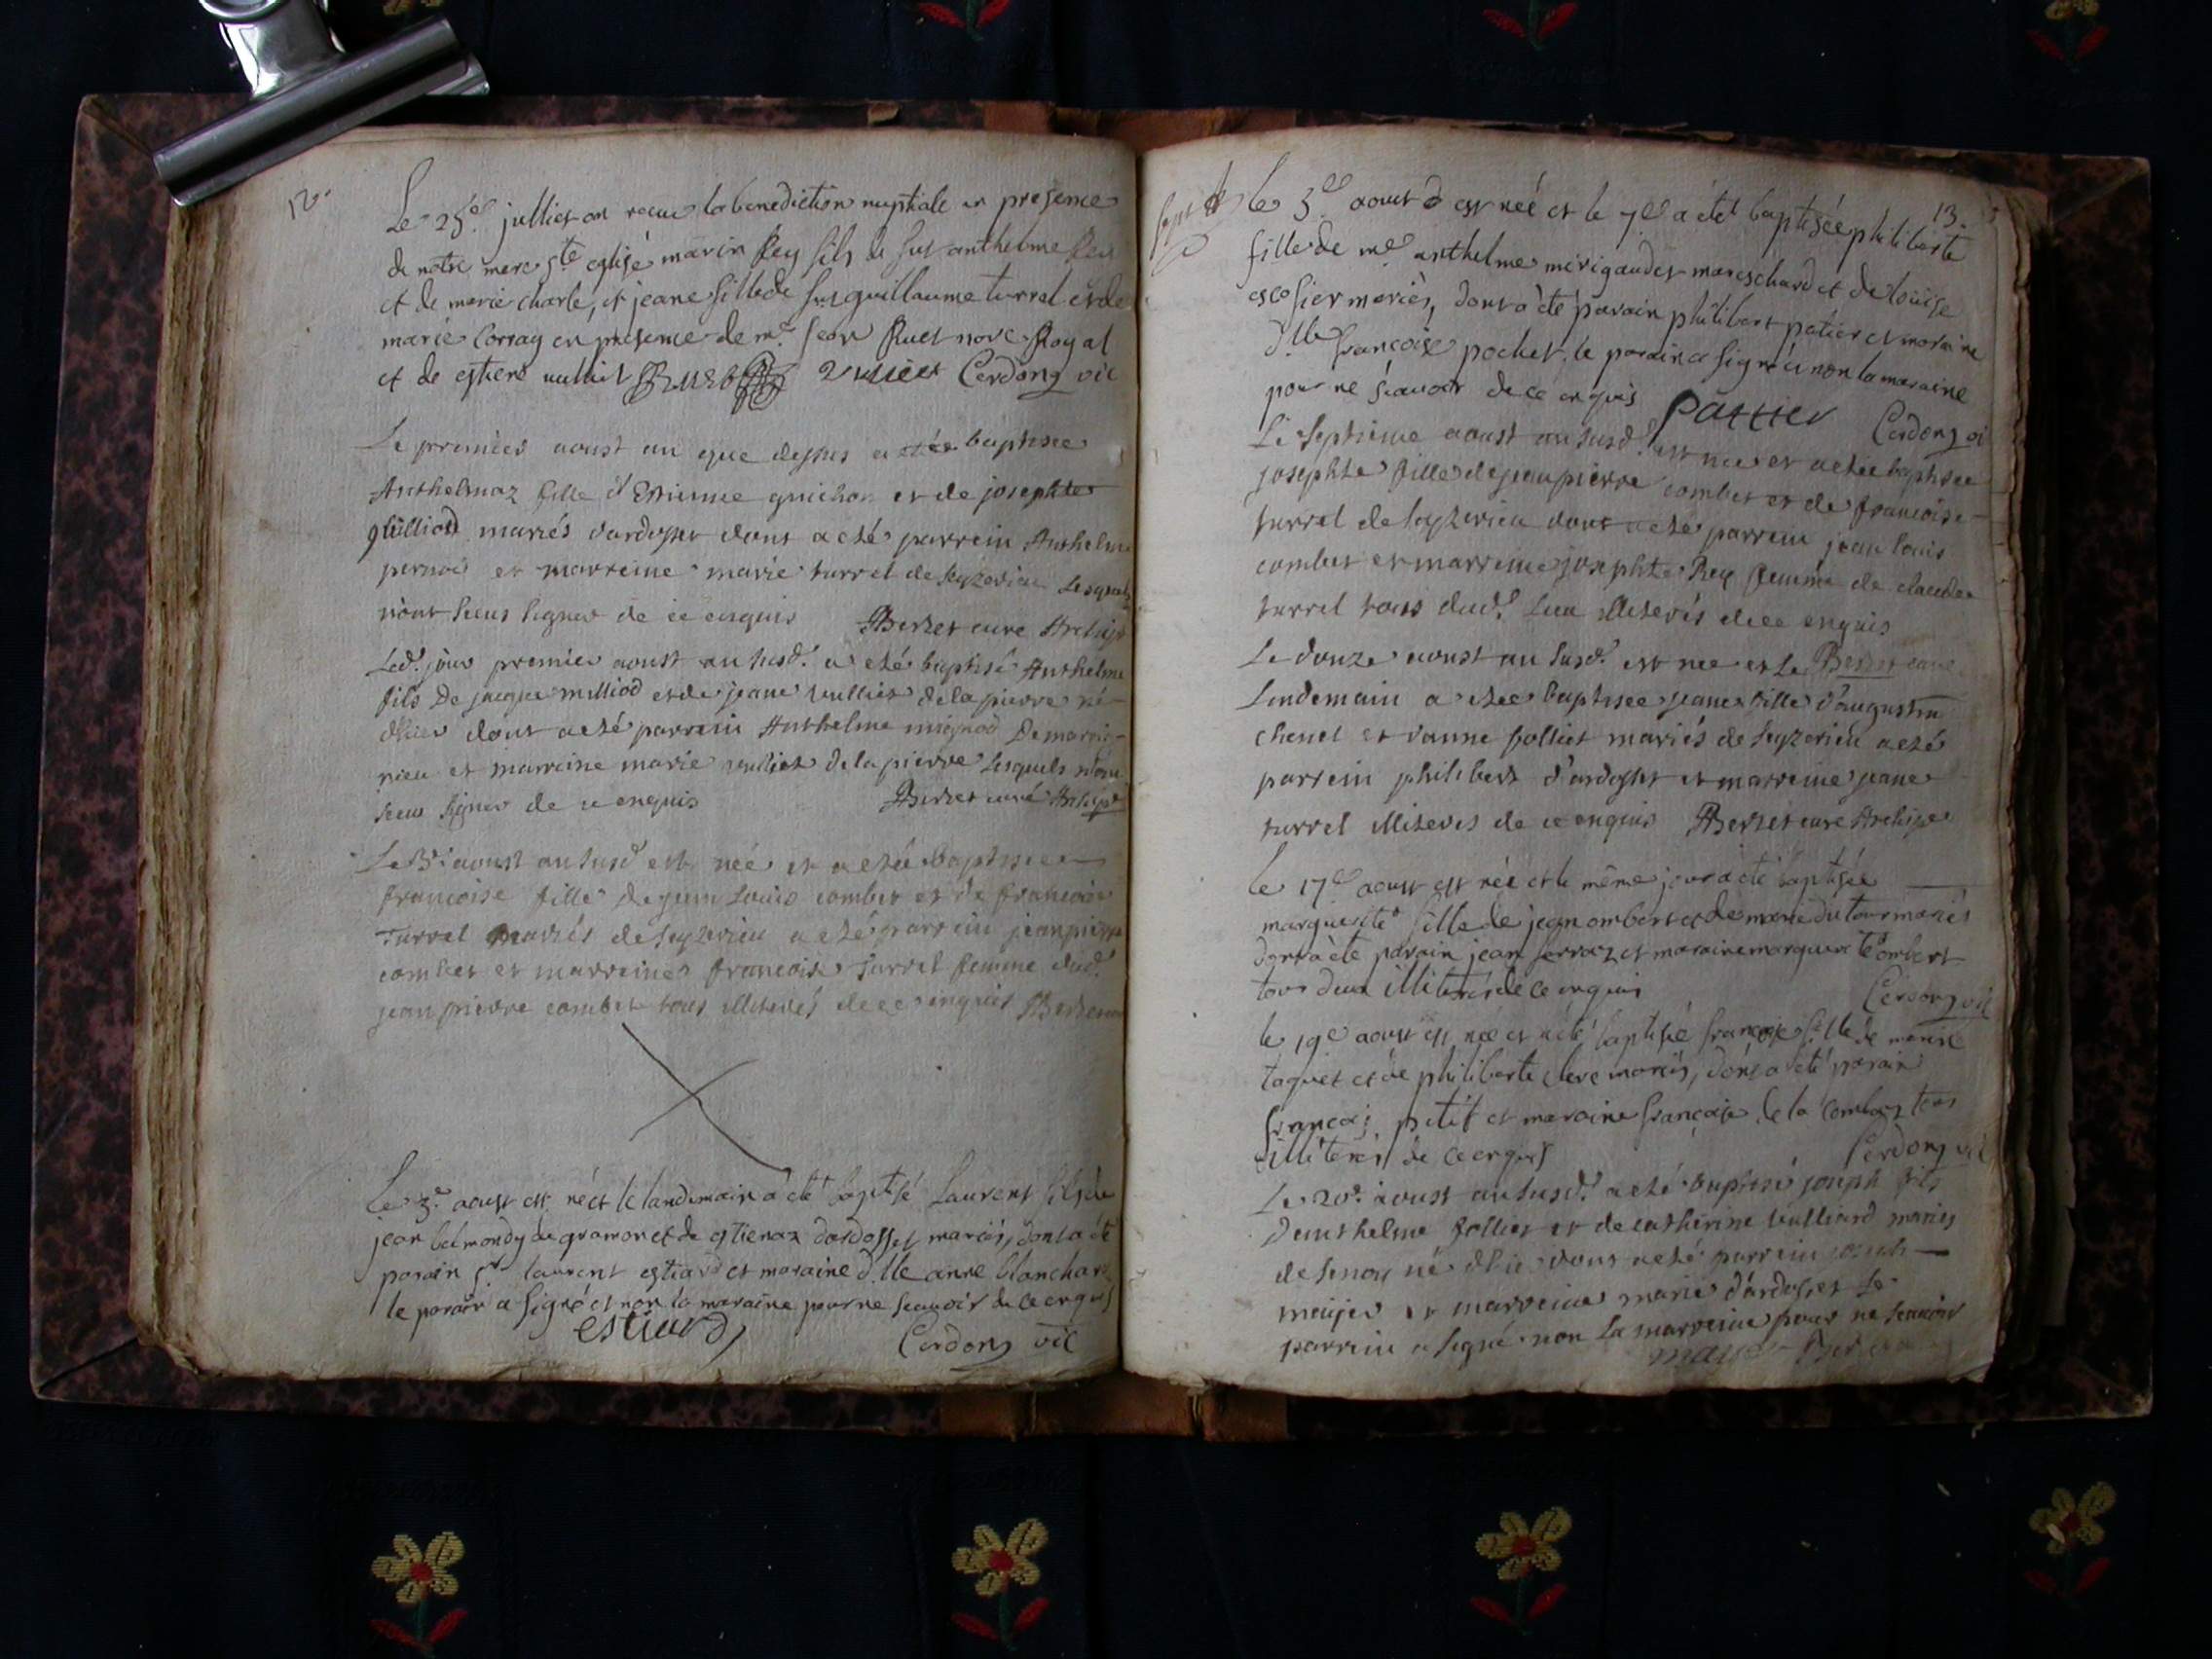 12.
Le 25e julliet on receu la benediction nuptiale en presence
de notre mere ste eglise marin Rey fils de fut anthelme Rey
et de marie charle, et jeane fille de fut guillaume turrel et de
marie Corray en presence de me Jean Ruet nore Royal
et de estiene vulliet Ruet Vuliet Cerdong vic
Le premier aoust an que dessus a etée baptisee
Anthelmaz fille d'Estienne guichon et de josephte
Milliod mariés dardosset dont a eté parrein Anthelme
pernod et marreine marie turrel de seyzerieu Lesquels
n'ont sceus signer de ce enquis Berzet curé Archip
Led. jour premier aoust an susd. a eté baptisé Anthelme
fils De jacque milliod et de jeane vulliet de la pierre né
d'hier dont a eté parrein Anthelme mignod De marig-
nieu et marreine marie vulliet de la pierre Lesquels n'ont
sceus signer de ce enquis Berzet curé Archip
Le 3e aoust an susd est née et a etée baptisee
francoise fille de jean Louis combet et de francoise
Turrel mariés de seyzerieu a eté parrein jean pierre
combet et marreine francoise turrel femme dud.
jean pierre combet tous illiterés de ce enquis Berzet
Le 3e aoust est né et le landemain a eté baptisé Laurent fils de
jean belmondy de gramon et de estienaz dardosset mariés, dont a eté
parain sr laurent estiard et maraine d.lle anne blanchard
le parain a signé et non la maraine pour ne scavoir de ce enquis
estiard Cerdong vic
13.
le 5e aoust est née et le 7e a eté baptisée philiberte
fille de me anthelme merigaudet mareschard et de louise
escosier mariés, dont a été parain philibert patier et maraine
d.lle françoise pochet, le parain a signé et non la maraine
pour ne scavoir de ce enquis pattier Cerdong vi
Le septieme aoust an susd. est nee et a etée baptisee
josephte fille de jean pierre combet et de francoise
turrel de seyzerieu dont a eté parrein jean louis
combet et marreine josephte Rey femme de claude
turrel tous dud. lieu illiterés de ce enquis
Berzet curé
Le douze aoust an susd. est nee et le
Lendemain a etee baptisee jeane fille d'augustin
chenel et d'anne folliet mariés de seyzerieu a eté
parrein philibert d'ardosset et marreine jeane
turrel illiterés de ce enquis Berzet curé Archip
le 17e aoust est née et le même jour a été baptisée
marguerite fille de jean ombert et de marie du tour mariés
dont a été parain jean serraz et maraine marguerite ombert
tous deux illiterés de ce enquis Cerdong vic
le 19e aoust est née et a été baptisée françoise fille de
taquet et de philiberte clerc mariés, dont a été parain
françois petit et maraine françoise de la Combaz tous
illiterés de ce enquis Cerdong vic
Le 20e aoust an susd. a eté baptisé joseph fils
d'anthelme folliet et de catherine vulliard mariés
né d'hier dont a eté parrein joseph
et marreine marie d'ardosset Le
parrein a signé non La marreine pour ne scavoir